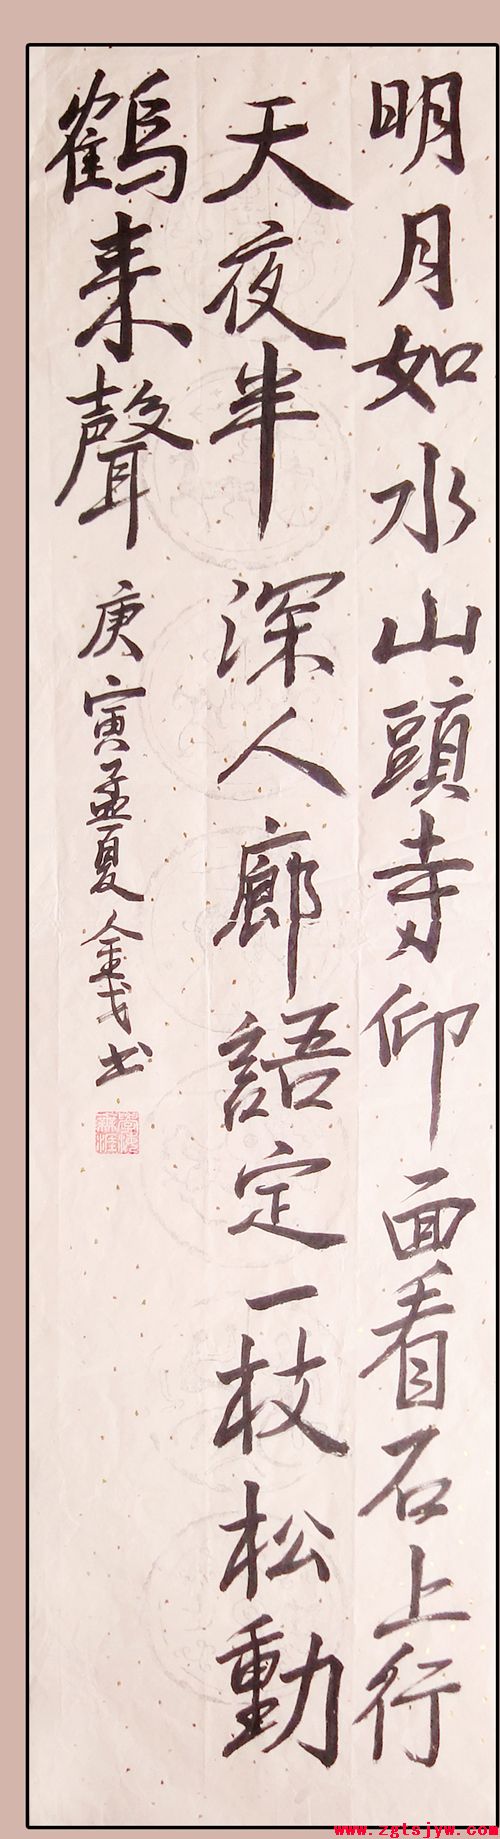 明月如水山頭寺仰面看石上行
天夜半深人廊語定一枝松動
鶴来聲
庚寅孟夏金戈书
www.zgtsjyw.com